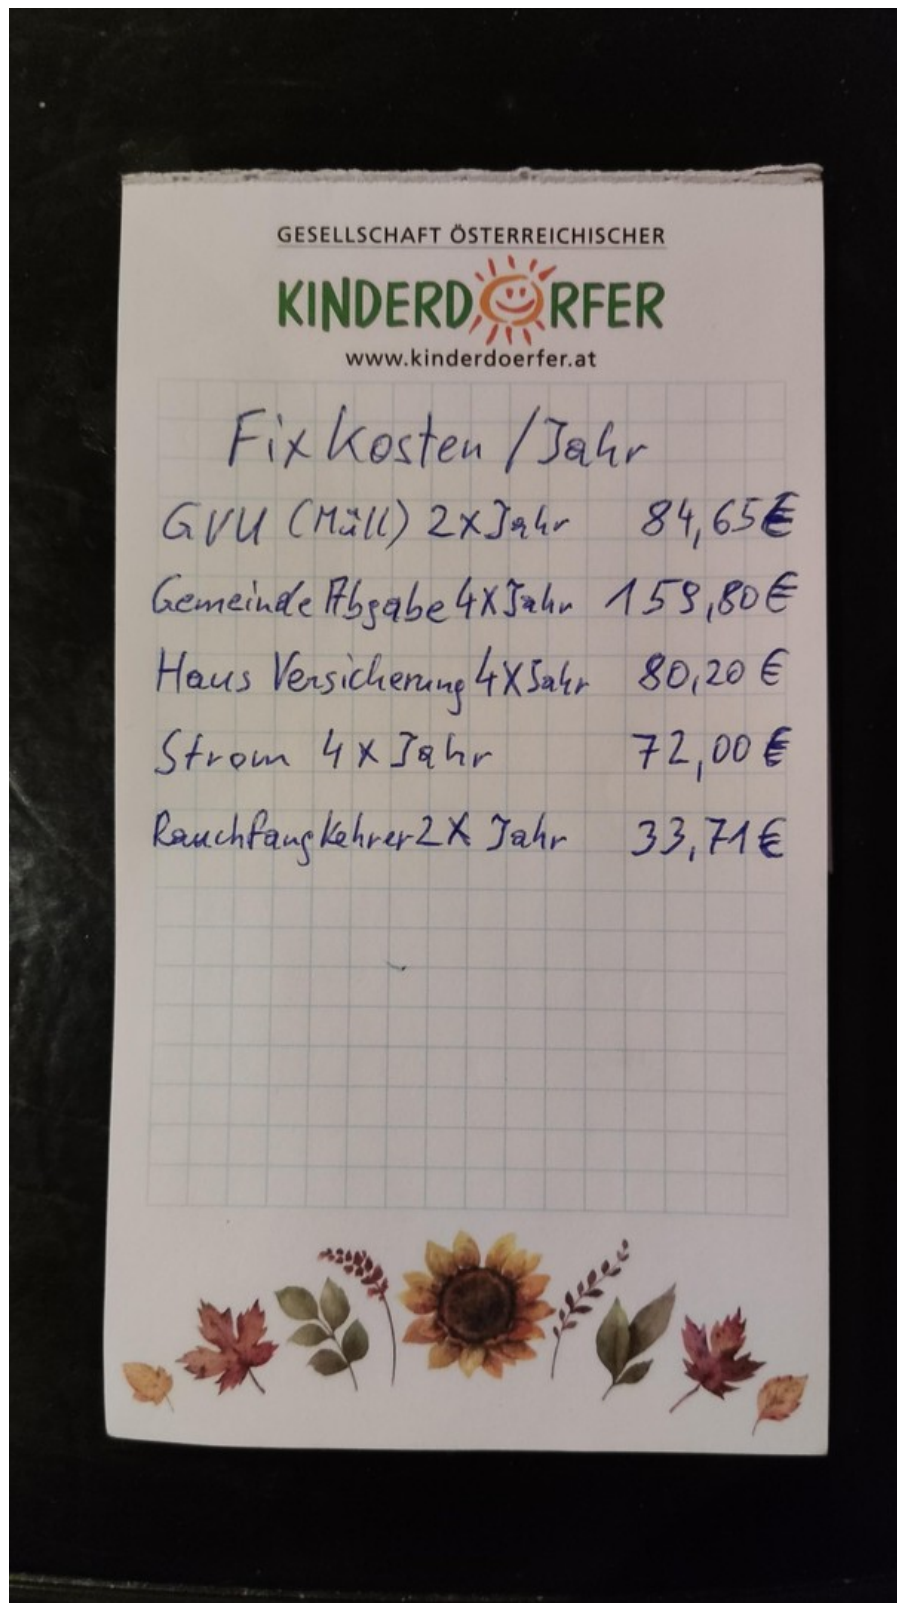 GESELLSCHAFT ÖSTERREICHISCHER
KINDERDÖRFER
www.kinderdoerfer.at
Fixkosten / Jahr
GVU (Müll) 2x Jahr 84,65€
Gemeinde Abgabe 4x Jahr 159,80€
Haus Versicherung 4x Jahr 80,20 €
Strom 4x Jahr 72,00 €
Rauchfangkehrer 2x Jahr 33,71€